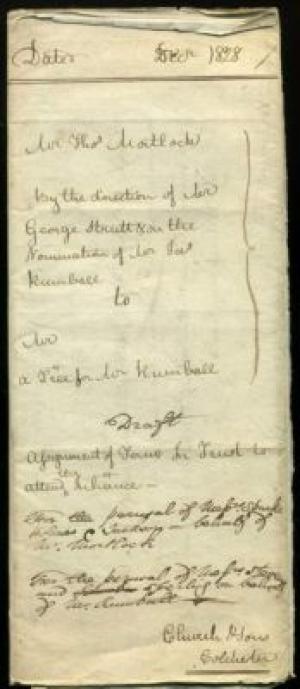 Dated Decr 1828
Mr Thos Mortlock
by the direction of Mr
George Strutt & on the
Nomination of Mr Jas
Kimball
to
Mr
a Tree for Mr Kimball
Draft
Assignment of Term in Trust to
attend the Inhance
For the perusal of Messrs
Jackson on behalf of
Mr. Mortlock
For the perusal of Messrs
and on behalf
of Mr. Kimball
Church & Sons
Colchester